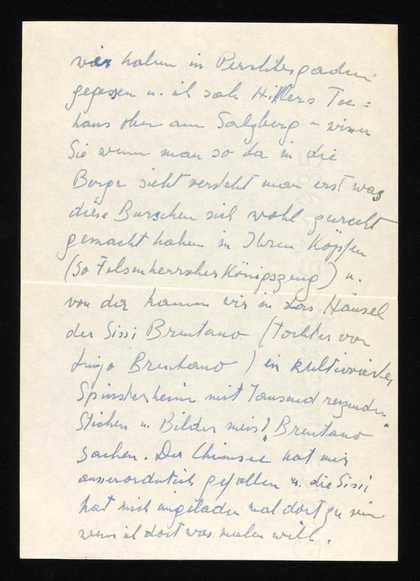 wir haben in Berchtesgaden
gegessen u. ich sah Hitlers Tee=
haus oben am Salzberg – wissen
Sie wenn man so da in die
Berge sieht versteht man erst was
diese Burschen sich wohl zurecht
gemacht haben in Ihren Köpfen
(so Felsenherrscher Königszeug) u.
von da kamen wir in das Häusel
der Sissi Brentano (Tochter von
Lujo Brentano) ein kultiviertes
Spinsterheim mit Tausend reizenden
Stichen u. Bilder meist „Brentano“
sachen. Der Chimsee hat mir
ausserordentlich gefallen u. die Sissi
hat mich eingeladen mal dort zu sein
wenn ich dort was malen will.